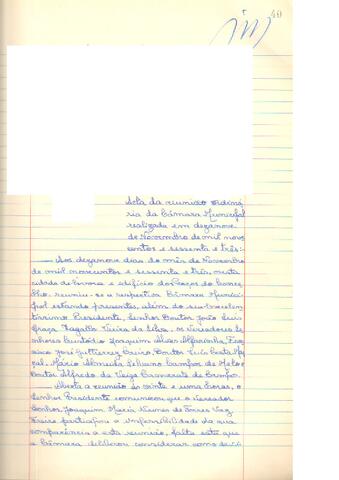 40
Acta da reunião ordiná-
ria da Câmara Municipal
realizada em dezanove
de Novembro de mil nove-
centos e sessenta e três:-
Aos dezanove dias do mês de Novembro
de mil novecentos e sessenta e três, nesta
cidade de Évora e edifício dos Paços do Conce-
lho, reuniu-se a respectiva Câmara Munici-
pal estando presentes, além do seu Excelen-
tíssimo Presidente, Senhor Doutor João Luís
Vieira da Silva, os Vereadores Se-
nhores Joaquim Alves Alfarinha, Fran-
cisco José Gutierrez Doutor Luís
Mário Almeida Campos de Melo e
Doutor Alfredo da Veiga
Aberta a reunião às vinte e uma horas, o
Senhor Presidente comunicou que o vereador
Senhor Joaquim Maria Nunes de Torres Vaz
Freire participou a impossibilidade da sua
comparência a esta reunião, falta esta que
a Câmara deliberou considerar como